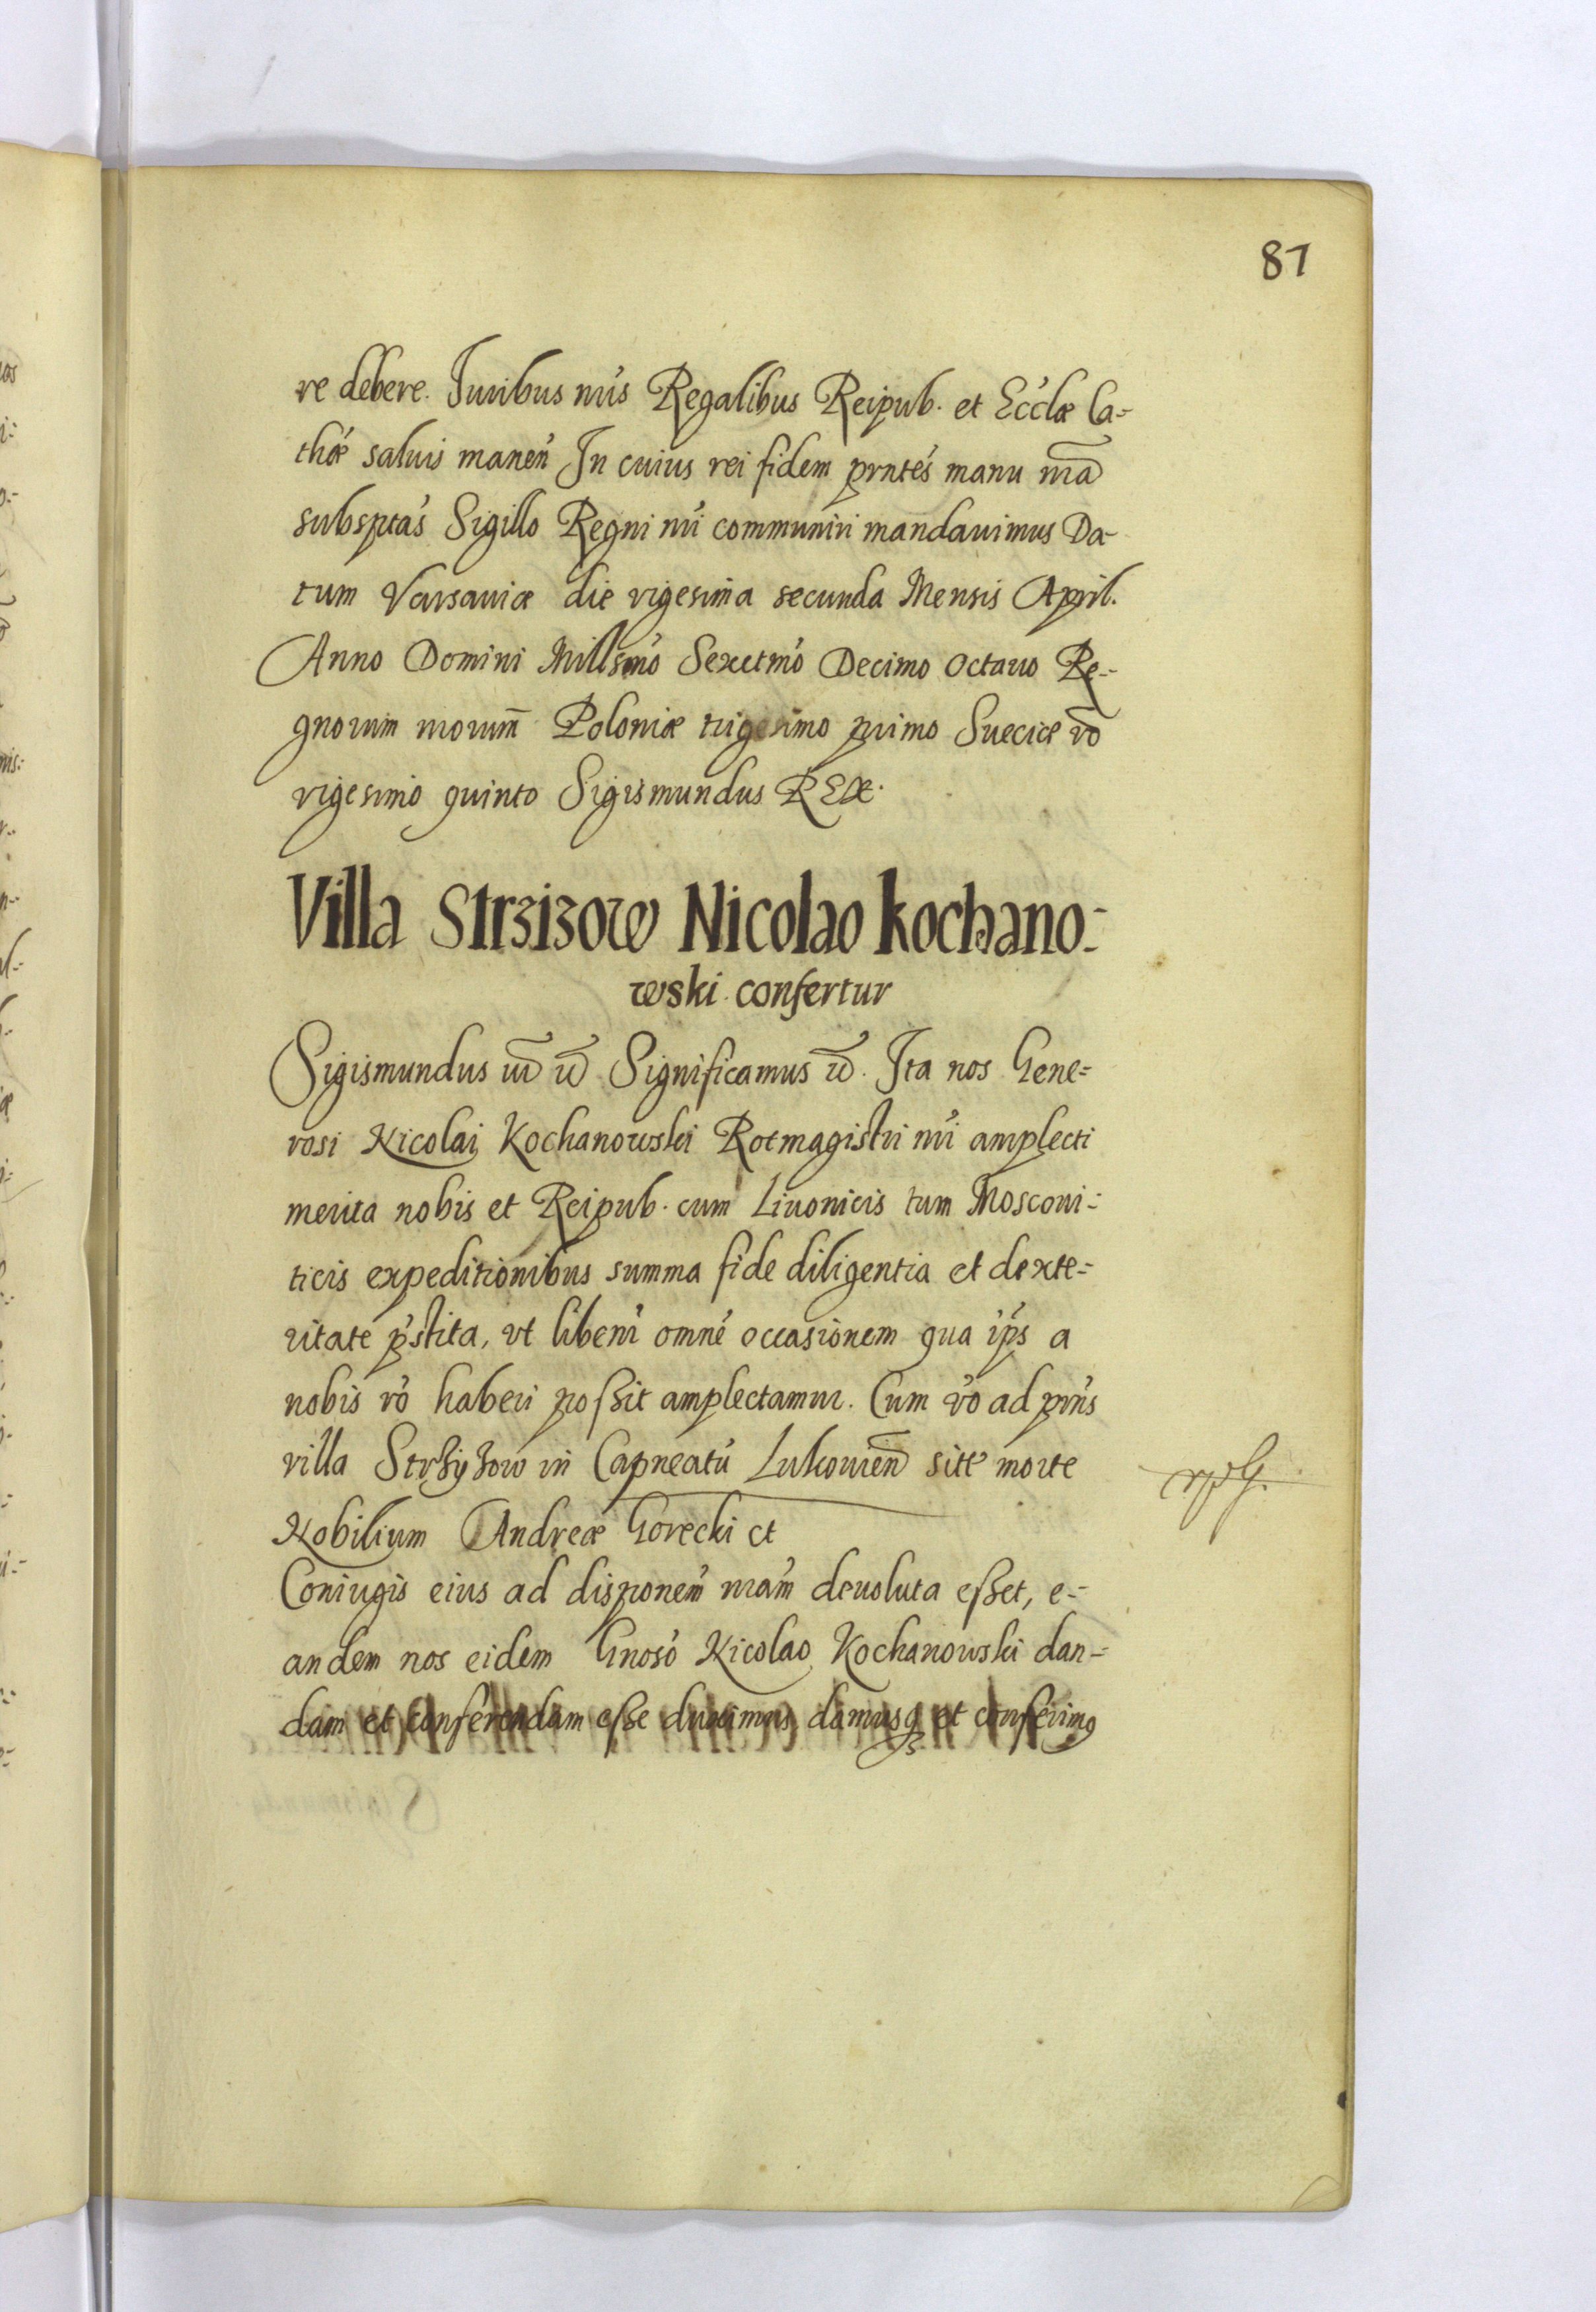 87
re debere. Juribus nris Regalibus Reipub. et Ecclæ Ca-
thóæ saluis manen In cuius rei fidem prntes manu nra
subsptas Sigillo Regni nri communiri mandauimus Da-
tum Varsauiæ die vigesima secunda Mensis April.
Anno Domini Millsmo Sexctmo Decimo octauo Re-
gnorum nrorum Poloniæ trigesimo primo Sueciæ vo
vigesimo quinto Sigismundus REX.
Villa Strzizow Nicolao Kochano-
wski confertur
Sigismundus Significamus Ita nos Gene-
rosi Nicolai Kochanowski Rotmagistri nri amplecti
merita nobis et Reipub. cum Liuonicis tum Mosconi-
ticis expeditionibus summa fide diligentia et dexte-
ritate pstita, vt libenr omne occasionem qua ips a
nobis ro haberi possit amplectamur. Cum vo ad prns
villa Strzyzow in Capneatu Lukouien sitæ morte
Nobilium Andreæ Gorecki et
Coniugis eius ad disponem nram deuoluta esset, e-
andem nos eidem Gnoso Nicolao Kochanowski dan-
dam et conferendam esse duximus damusq et conferimus